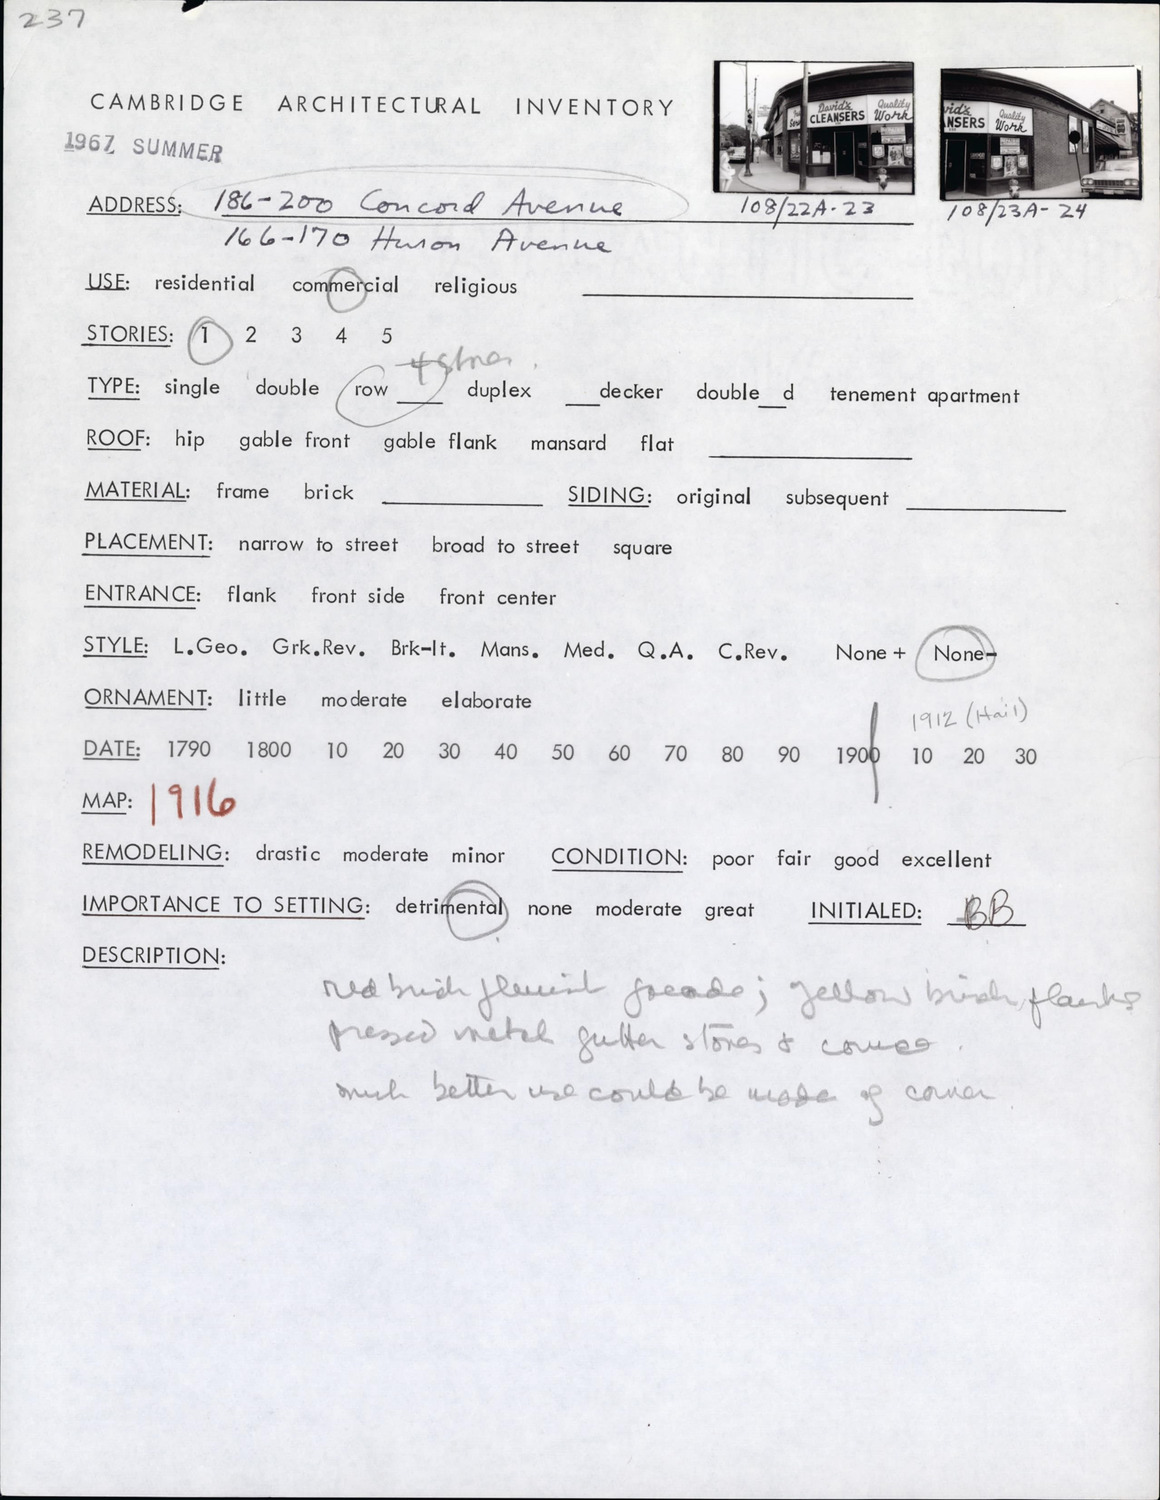 237
CAMBRIDGE ARCHITECTURAL INVENTORY
1967 SUMMER
David's CLEANSERS Quality Work
vid's NSERS Quality Work
108/22A-23
108/23A-24
ADDRESS: 186-200 Concord Avenue
166-170 Huron Avenue
USE: residential commercial religious
STORIES: 1 2 3 4 5
TYPE: single double row ___ duplex ___decker double__d tenement apartment
ROOF: hip gable front gable flank mansard flat
MATERIAL: frame brick SIDING: original subsequent
PLACEMENT: narrow to street broad to street square
ENTRANCE: flank front side front center
STYLE: L.Geo. Grk.Rev. Brk-It. Mans. Med. Q.A. C.Rev. None + None-
ORNAMENT: little moderate elaborate
1912 (Hail)
DATE: 1790 1800 10 20 30 40 50 60 70 80 90 1900 10 20 30
MAP: 1916
REMODELING: drastic moderate minor CONDITION: poor fair good excellent
IMPORTANCE TO SETTING: detrimental none moderate great INITIALED: BB
DESCRIPTION:
red brick facade; yellow brick flanks
pressed metal gutter stores &
much better use could be made of corner